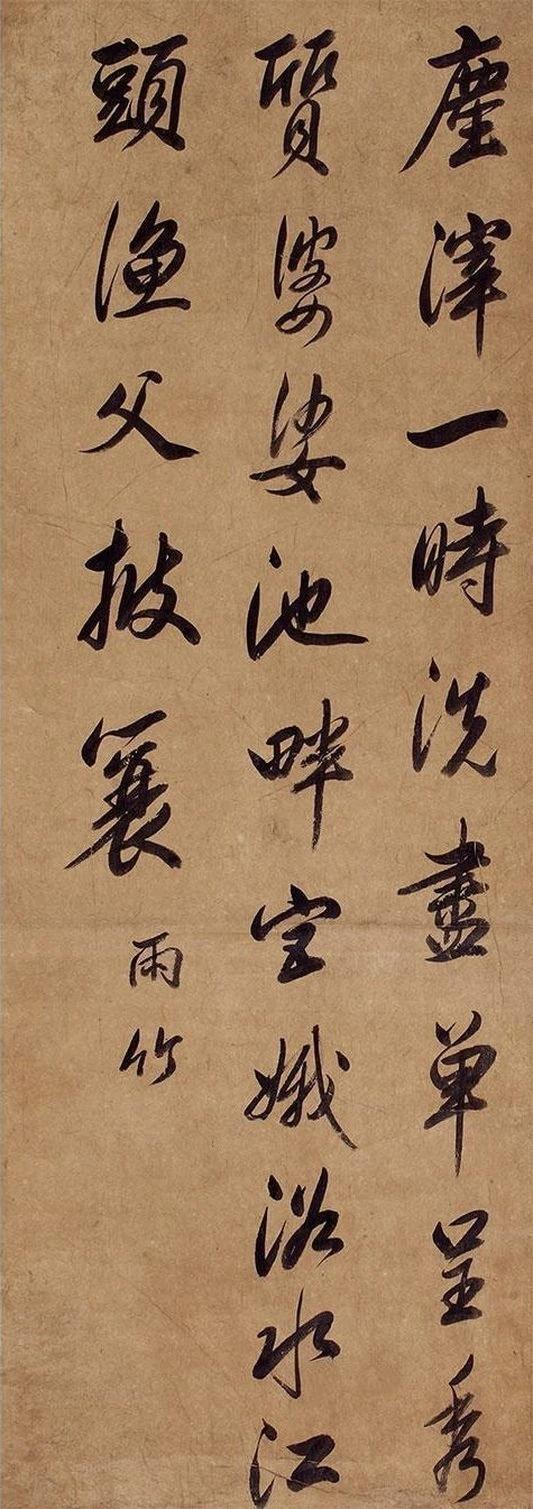 塵滓一時洗盡单呈秀
質婆娑池畔宫娥浴水江
頭漁父披蓑
雨竹